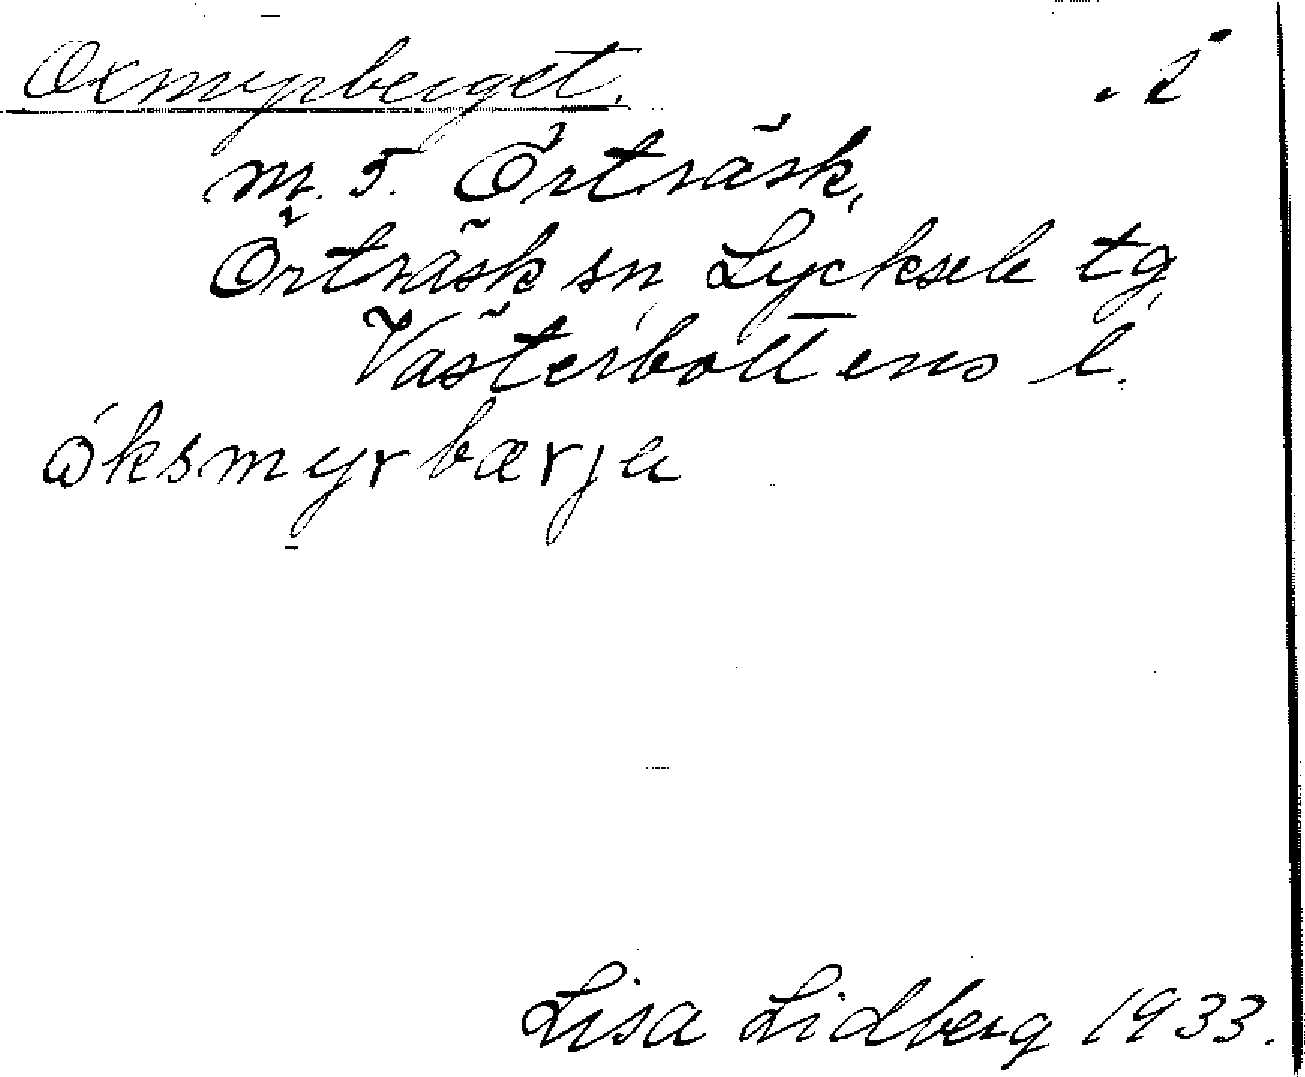 Oxmyrberget. . i
m. 5. Örträsk,
Örträsk sn, Lycksele tg,
Västerbottens l.
öksmyrbærjɐ
Lisa Lidberg 1933.